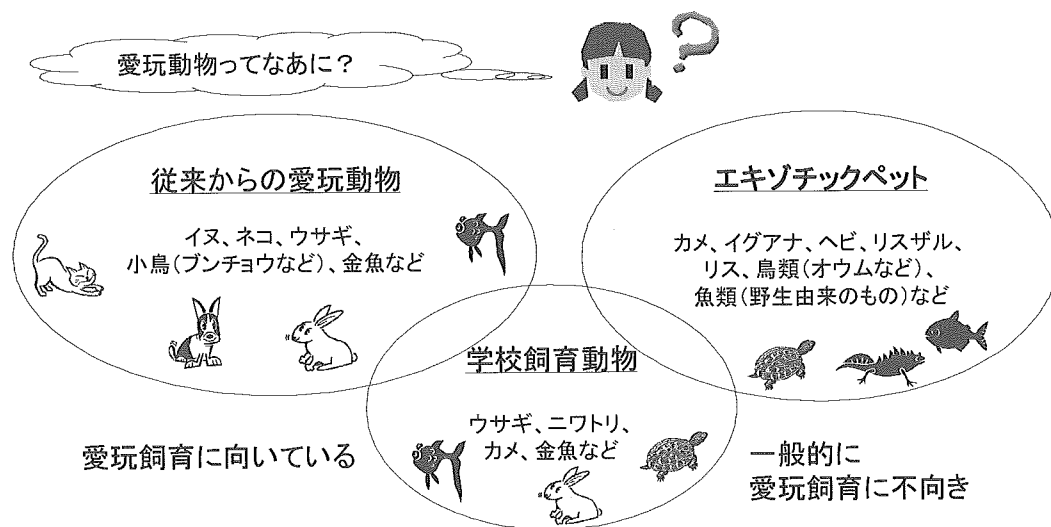 愛玩動物ってなあに?
従来からの愛玩動物
イヌ、ネコ、ウサギ、
小鳥(ブンチョウなど)、金魚など
エキゾチックペット
カメ、イグアナ、ヘビ、リスザル、
リス、鳥類(オウムなど)、
魚類(野生由来のもの)など
学校飼育動物
ウサギ、ニワトリ、
カメ、金魚など
愛玩飼育に向いている
一般的に
愛玩飼育に不向き